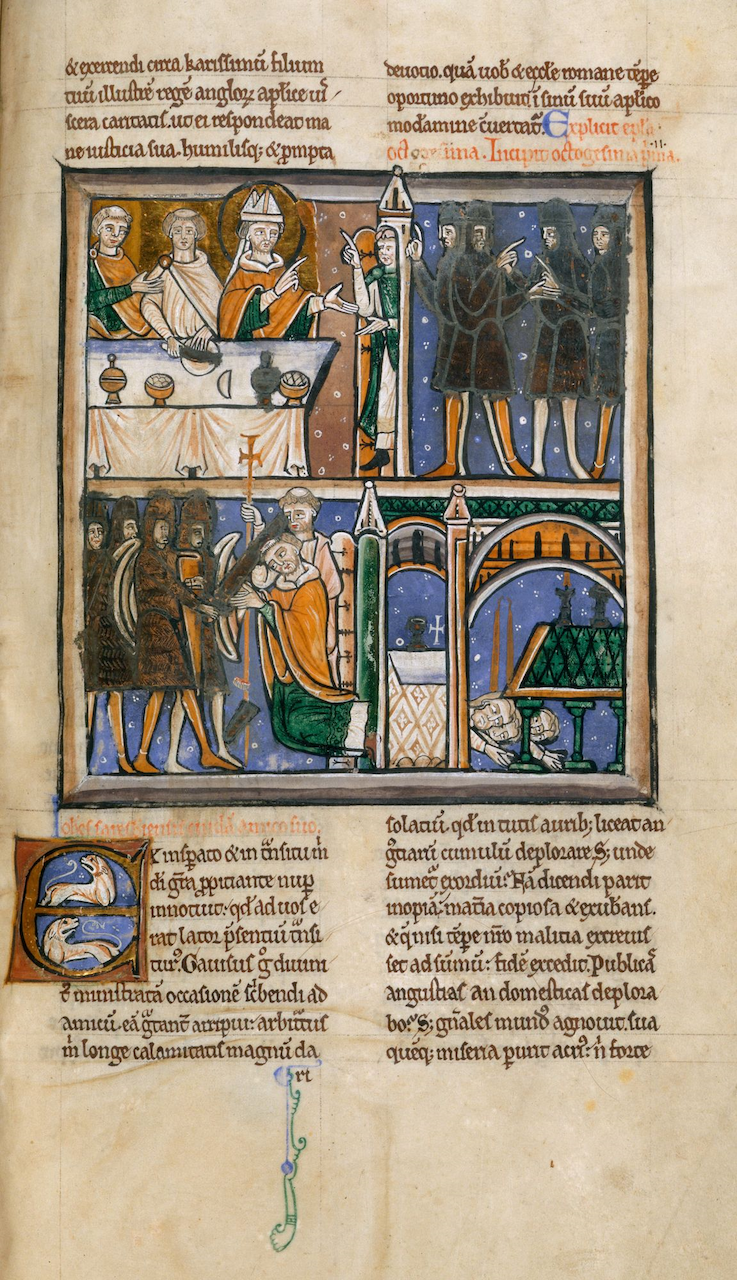 & exercendi circa karissimū filium
tuū illustrē regē angloꝝ aplice uı̄
scera caritatis. ut ei respondeat ma
ne iusticia sua. humilisq; & pmpta
deuotio. quā uob & eccłe romane tēpe
oportuno exhibuit ī sinū suū aplico
modamine ꝯuertat. Explicit epła
octogesima. Incipit octogesima pima.
Iohes saresbiensis amico suo.
Ex inspato & in t̄nsitu m̄
di gr̄a ppitiante nup
innotuit. qd ad uos e
rat lator p̄sentiū t̄nsi
tur. Gauisus g̊ diuini
t ministratā occasionē sc̄bendi ad
amicū. eā gr̄tant arripui. arbitratus
m̄ longe calamitatis magnū da
ri
solatiū. qd in tutis aurib; liceat an
gtiarū cumulū deplorare. S; unde
sumet exordiū? Nā dicendi parit
inopiā. mat̄ia copiosa & exubans.
& q̄ nisi tēpe nr̄o malitia excreuis
set ad sūmū. fidē excedit. Publicā
angustias an domesticas deplora
bo? S; gn̄ales mund agnouit. sua
quēq; miseria purit acri. n̄ forte